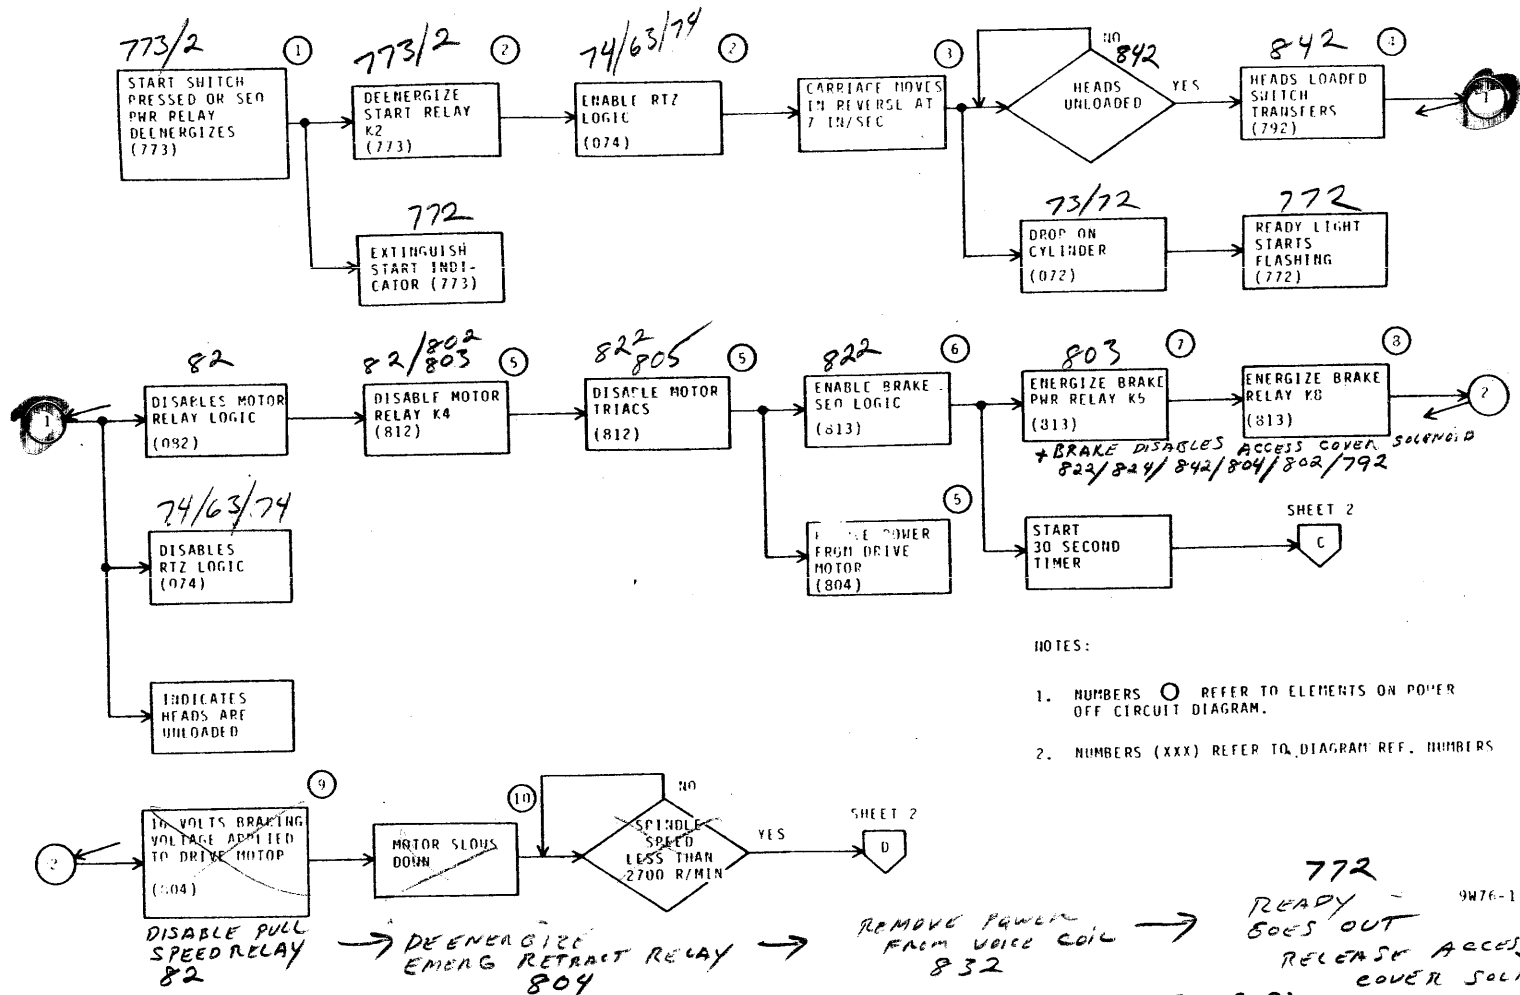 773/2
1
START SWITCH
PRESSED OR SEQ
PWR RELAY
DEENERGIZES
(773)
773/2
2
DEENERGIZE
START RELAY
K2
(773)
74/63/74
2
ENABLE RTZ
LOGIC
(074)
3
CARRIAGE MOVES
IN REVERSE AT
7 IN/SEC
NO
842
HEADS
UNLOADED
YES
842
4
HEADS LOADED
SWITCH
TRANSFERS
(792)
1
772
EXTINGUISH
START INDI-
CATOR (773)
73/72
DROP ON
CYLINDER
(072)
772
READY LIGHT
STARTS
FLASHING
(772)
1
82
DISABLES MOTOR
RELAY LOGIC
(082)
82/802
803
5
DISABLE MOTOR
RELAY K4
(812)
822
805
5
DISABLE MOTOR
TRIACS
(812)
822
6
ENABLE BRAKE
SEQ LOGIC
(813)
803
7
ENERGIZE BRAKE
PWR RELAY K5
(813)
8
ENERGIZE BRAKE
RELAY K8
(813)
2
* BRAKE DISABLES ACCESS COVER SOLENOID
822/824/842/804/802/792
74/63/74
DISABLES
RTZ LOGIC
(074)
5
POWER
FROM DRIVE
MOTOR
(804)
START
30 SECOND
TIMER
SHEET 2
C
INDICATES
HEADS ARE
UNLOADED
NOTES:
1. NUMBERS REFER TO ELEMENTS ON POWER
OFF CIRCUIT DIAGRAM.
2. NUMBERS (XXX) REFER TO DIAGRAM REF. NUMBERS
2
9
16 VOLTS BRAKING
VOLTAGE APPLIED
TO DRIVE MOTOR
(804)
10
MOTOR SLOWS
DOWN
NO
SPINDLE
SPEED
LESS THAN
2700 R/MIN
YES
SHEET 2
D
DISABLE PULL
SPEED RELAY
82
DEENERGIZE
EMERG RETRACT RELAY
804
REMOVE POWER
FROM VOICE COIL
832
772
READY
GOES OUT
9W76-1
RELEASE ACCESS
COVER